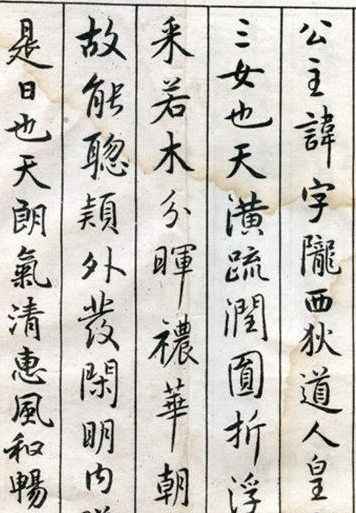 公主諱字隴西狄道人皇
三女也天潢疏潤圓折浮
采若木分暉穠華朝
故能聰穎外發閑明内
是日也天朗氣清惠風和暢